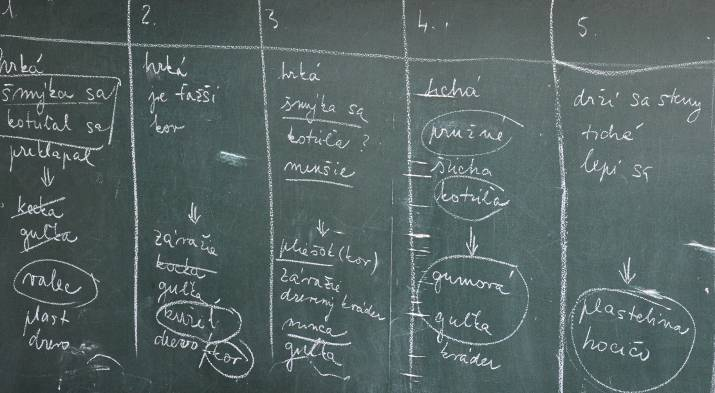 1.
hrká
šmýka sa
kotúlal sa
preklápal
kocka
guľka
valec
plast
drevo
2.
hrká
je ťažší
kov
závažie
kocka
guľka
kužeľ
drevo kov
3
hrká
šmýka sa
kotúľa ?
menšie
pliešok (kov)
závažie
drevený kváder
minca
guľka
4.
tichá
pružné
šuchá
kotúľa
gumová
guľka
kváder
5.
drží sa steny
tiché
lepí sa
plastelína
hocičo